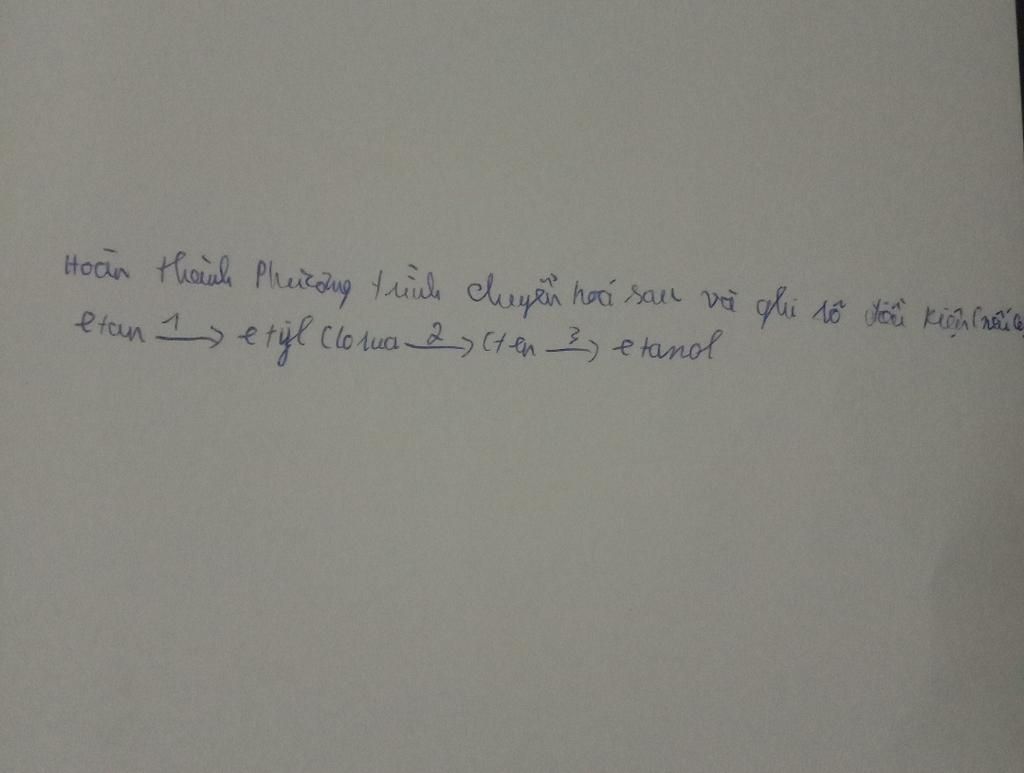 Hoàn thành Phương trình chuyển hoá sau và ghi rõ điều kiện (nếu có
etan 1→ etyl Clorua 2→ eten 3→ etanol